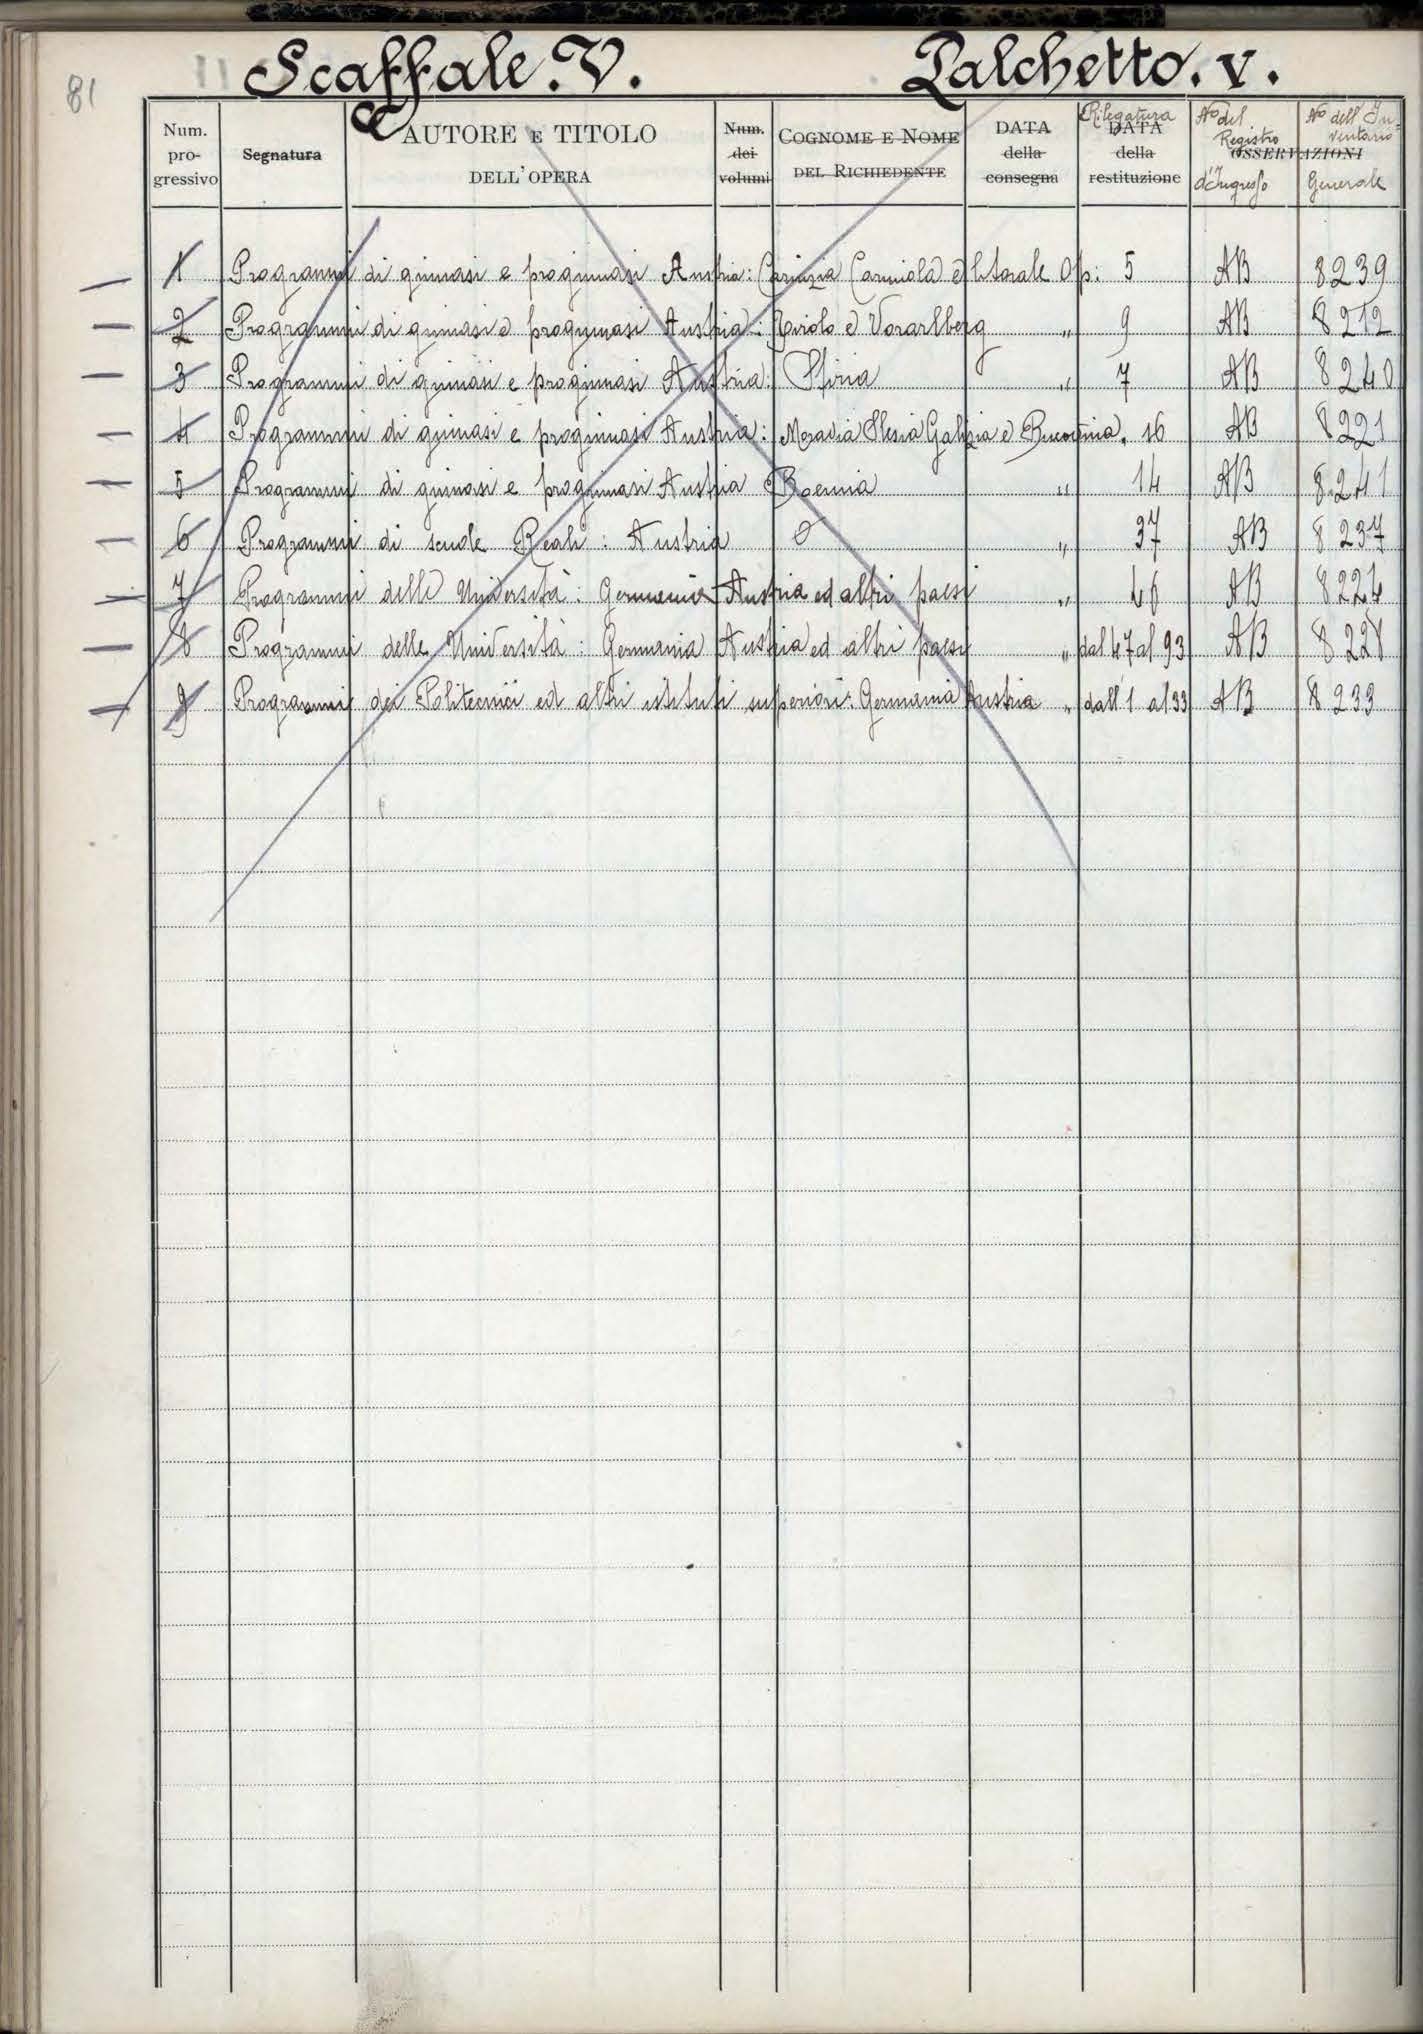 81
Scaffale. V. Palchetto. V.
Num. progressivo Segnatura AUTORE E TITOLO DELL'OPERA Num. dei volumi COGNOME E NOME DEL RICHIEDENTE DATA della consegna Rilegatura DATA della restituzione No del Registro d'Ingresso OSSERVAZIONI No dell'Inventario Generale
1 Programmi di ginnasi e proginnasi Austria: Carinzia Carniola e litorale Op: 5 AB 8239
2 Programmi di ginnasi e proginnasi Austria: Tirolo e Vorarlberg " 9 AB 8212
3 Programmi di ginnasi e proginnasi Austria: Stiria " 7 AB 8240
4 Programmi di ginnasi e proginnasi Austria: Moravia Slesia Galizia e Bucovina. 16 AB 8221
5 Programmi di ginnasi e proginnasi Austria Boemia " 14 AB 8241
6 Programmi di scuole Reali: Austria " 37 AB 8237
7 Programmi delle Università: Germania Austria ed altri paesi " 46 AB 8224
8 Programmi delle Università: Germania Austria ed altri paesi " dal 47 al 93 AB 8228
9 Programmi dei Politecnici ed altri istituti superiori: Germania Austria " dall'1 al 33 AB 8233